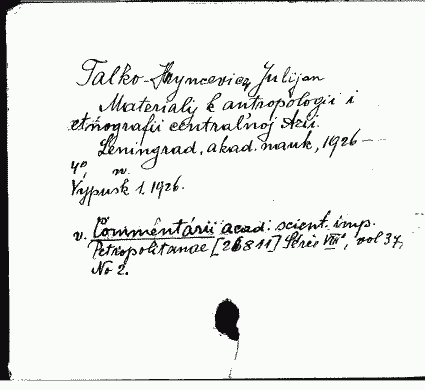 Talko-Hryncevicz, Julijan
Materialij k antropologii i
etňografii central'noj Azii.
Leningrad, akad. nauk, 1926 —
4°, n.
Vypusk 1. 1926.
v. Commentárii acad. scient. imp.
Petropolitanae [26811] Série VIIIe, vol 37,
No 2.